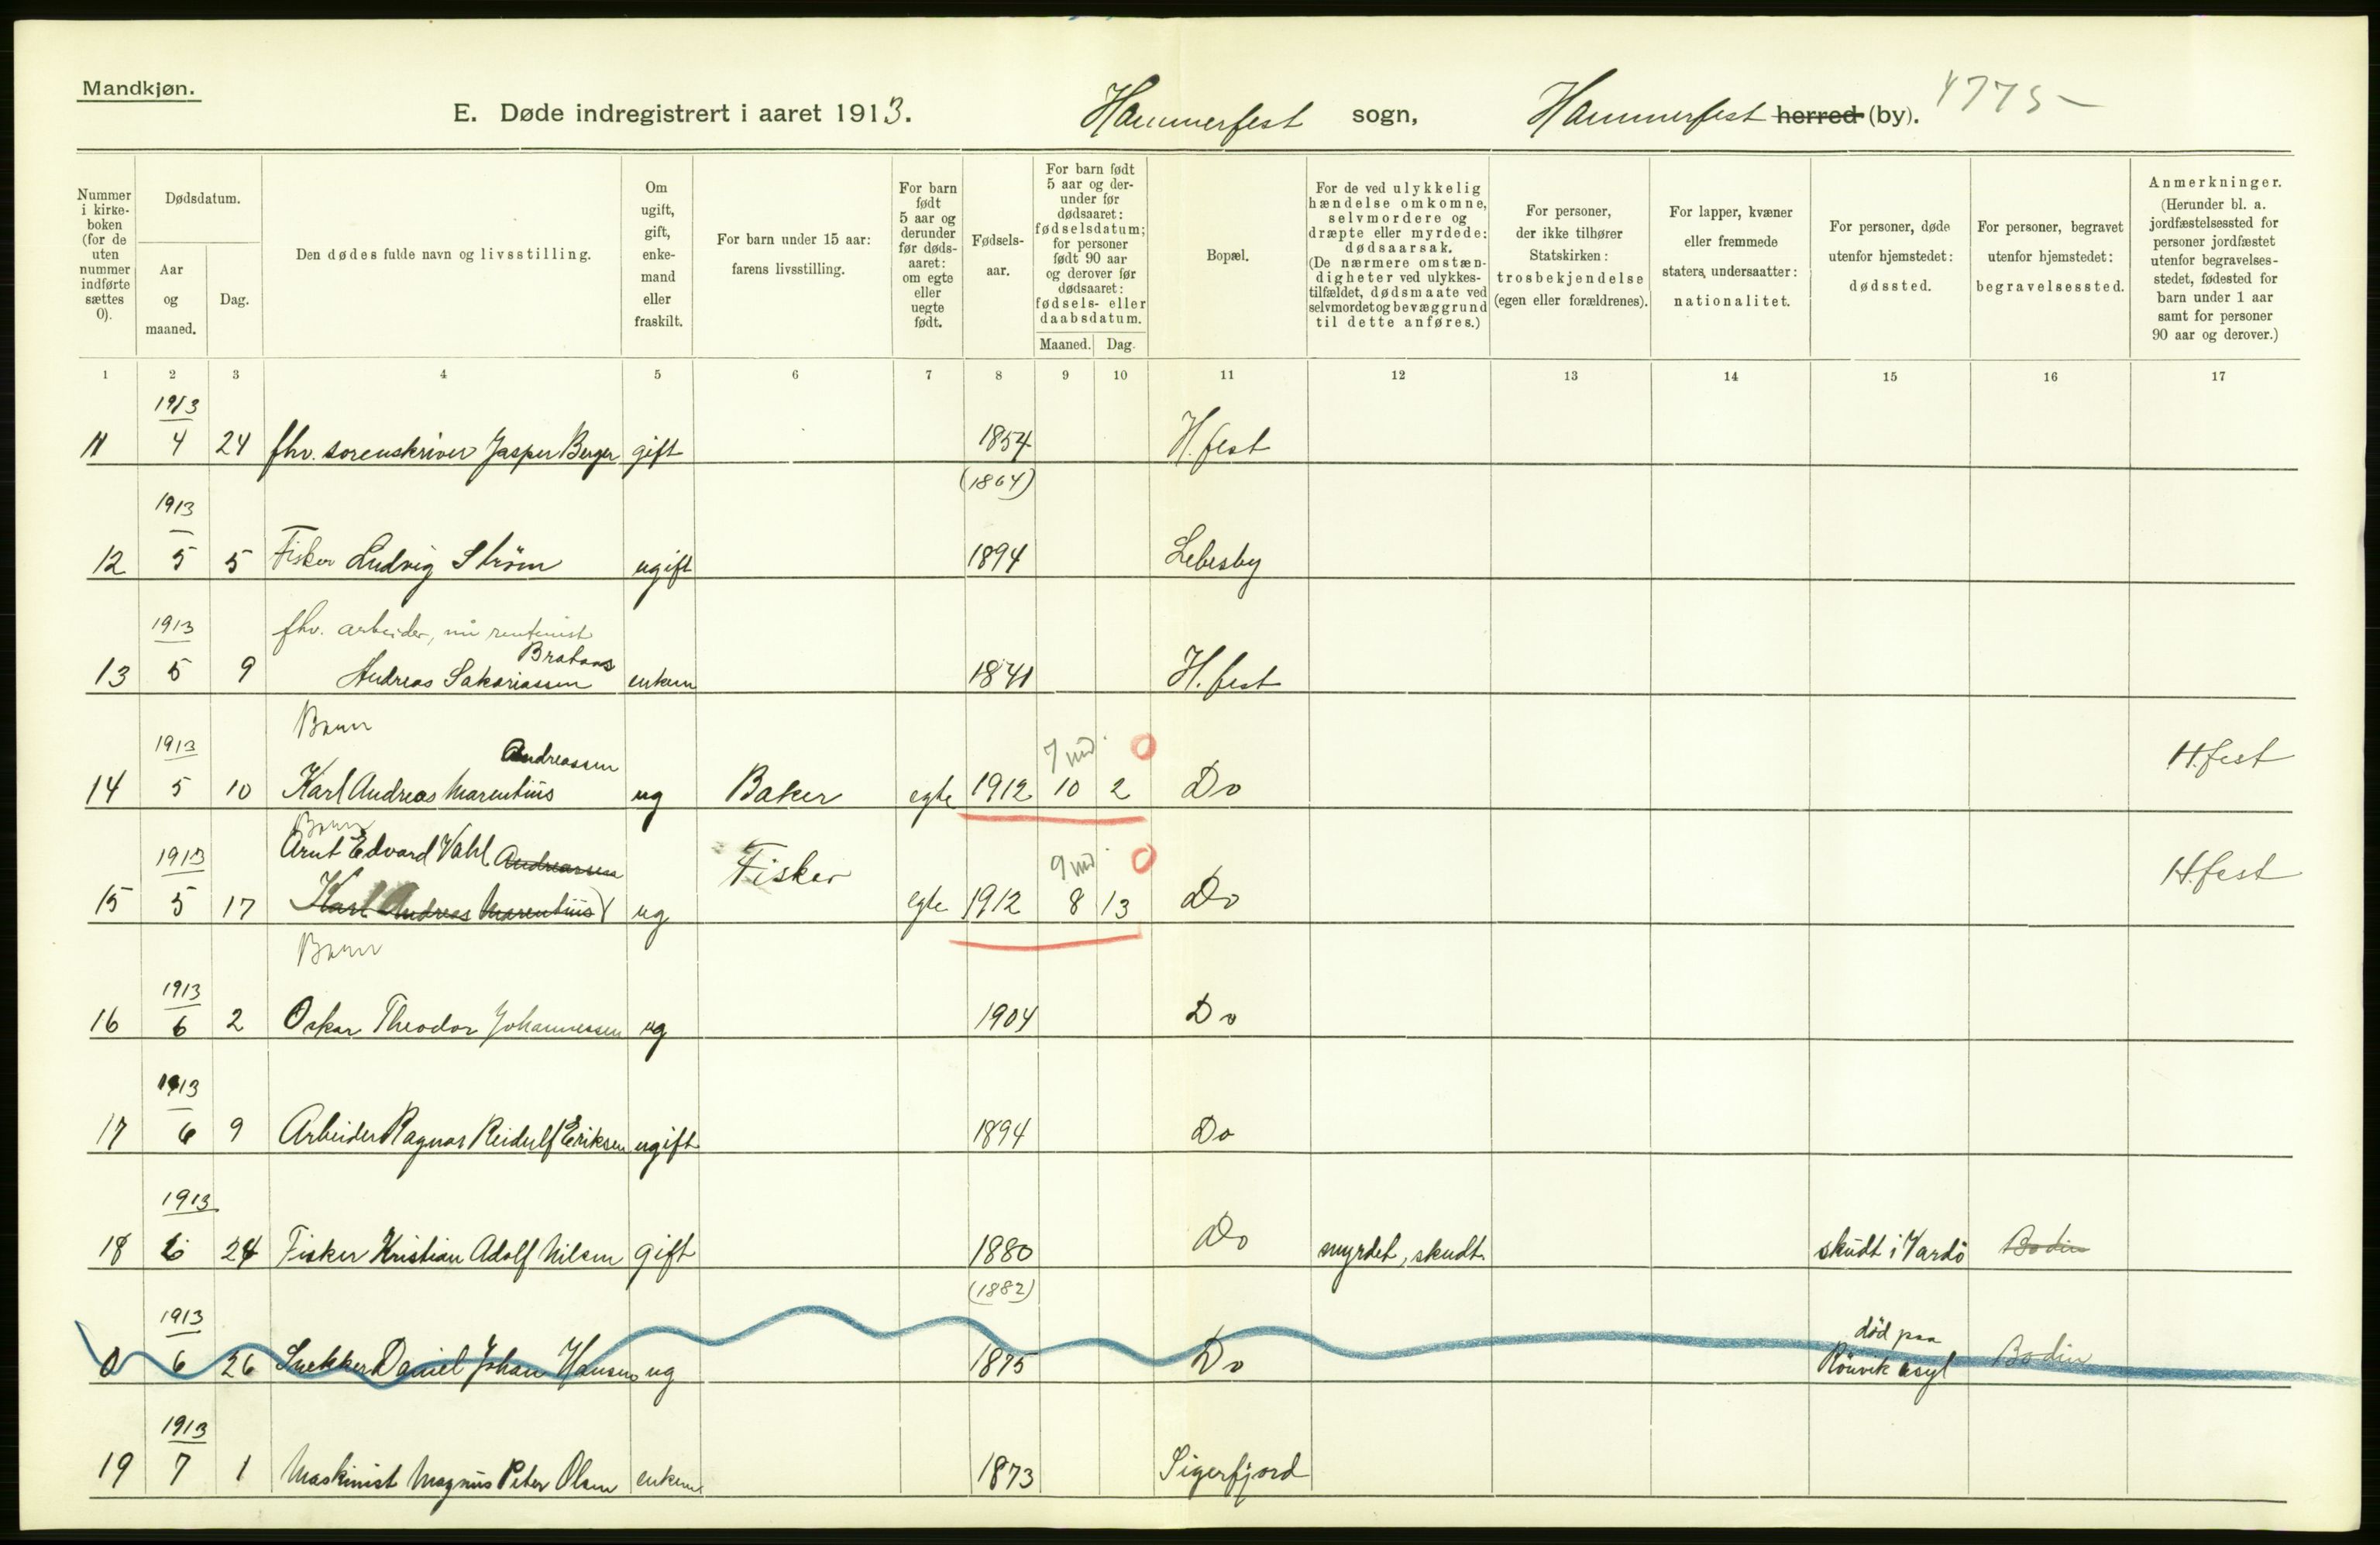 Mandkjøn.
E. Døde indregistrert i aaret 1913. Hammerfest sogn, Hammerfest herred (by). 4775
Nummer i kirke-boken (for de uten nummer indførte sættes 0).
Dødsdatum.
Aar og maaned.
Dag.
Den dødes fulde navn og livsstilling.
Om ugift, gift, enke-mand eller fraskilt.
For barn under 15 aar: farens livsstilling.
For barn født 5 aar og derunder før døds-aaret: om egte eller uegte født.
Fødsels-aar.
For barn født 5 aar og der-under før dødsaaret: fødselsdatum; for personer født 90 aar og derover før dødsaaret: fødsels- eller daabsdatum.
Maaned. Dag.
Bopæl.
For de ved ulykkelig hændelse omkomne, selvmordere og dræpte eller myrdede: dødsaarsak. (De nærmere omstæn-digheter ved ulykkes-tilfældet, dødsmaate ved selvmordet og bevæggrund til dette anføres.)
For personer, der ikke tilhører Statskirken: trosbekjendelse (egen eller forældrenes).
For lapper, kvæner eller fremmede staters, undersaatter: nationalitet.
For personer, døde utenfor hjemstedet: dødssted.
For personer, begravet utenfor hjemstedet: begravelsessted.
Anmerkninger. (Herunder bl. a. jordfæstelsessted for personer jordfæstet utenfor begravelses-stedet, fødested for barn under 1 aar samt for personer 90 aar og derover.)
1 2 3 4 5 6 7 8 9 10 11 12 13 14 15 16 17
1913
11 4 24 fhv. sorenskriver Jasper Berger gift 1854 H.fest
(1864)
1913
12 5 5 Fisker Ludvig Strøm ugift 1894 Lebesby
1913 fhv. arbeider, nu rentenist
Bratans
13 5 9 Andreas Sakariassen enkem 1841 H.fest
Barn
1913 Andreassen 7 md. 0 H.fest
14 5 10 Karl Andreas Marentius ug Baker egte 1912 10 2 Do
Barn
1913 Arnt Edvard Vahl Andreassen Fisker 9 md. 0 H.fest
15 5 17 Karl Andreas Marentius ug egte 1912 8 13 Do
Barn
1913
16 6 2 Oskar Theodor Johannessen ug 1904 Do
1913
17 6 9 Arbeider Ragnar Reidulf Eriksen ugift 1894 Do
1913
18 6 24 Fisker Kristian Adolf Nilsen gift 1880 Do myrdet, skudt. skudt i Vardö Bodin
(1882)
1913 död paa
0 6 26 Snekker Daniel Johan Hansen ug 1875 Do Rönvik asyl Bodin
1913
19 7 1 Maskinist Magnus Peter Olsen enkem 1873 Sigerfjord